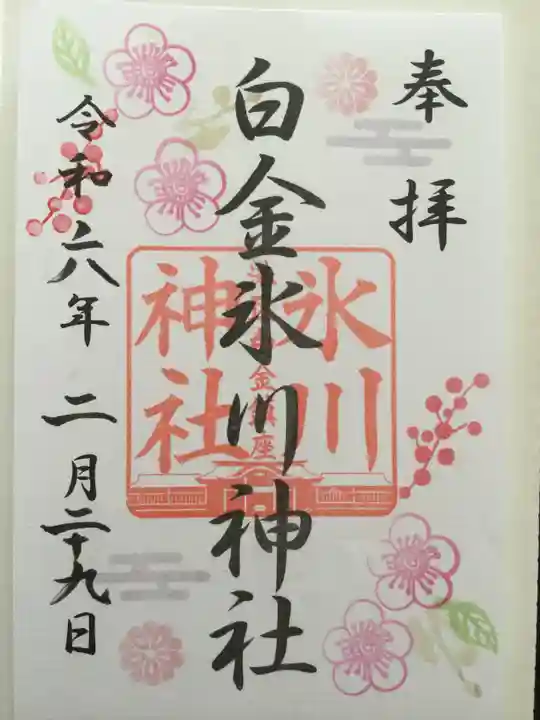 奉拝
白金氷川神社
氷川
神社
金鎮座
令和六年 二月二十九日